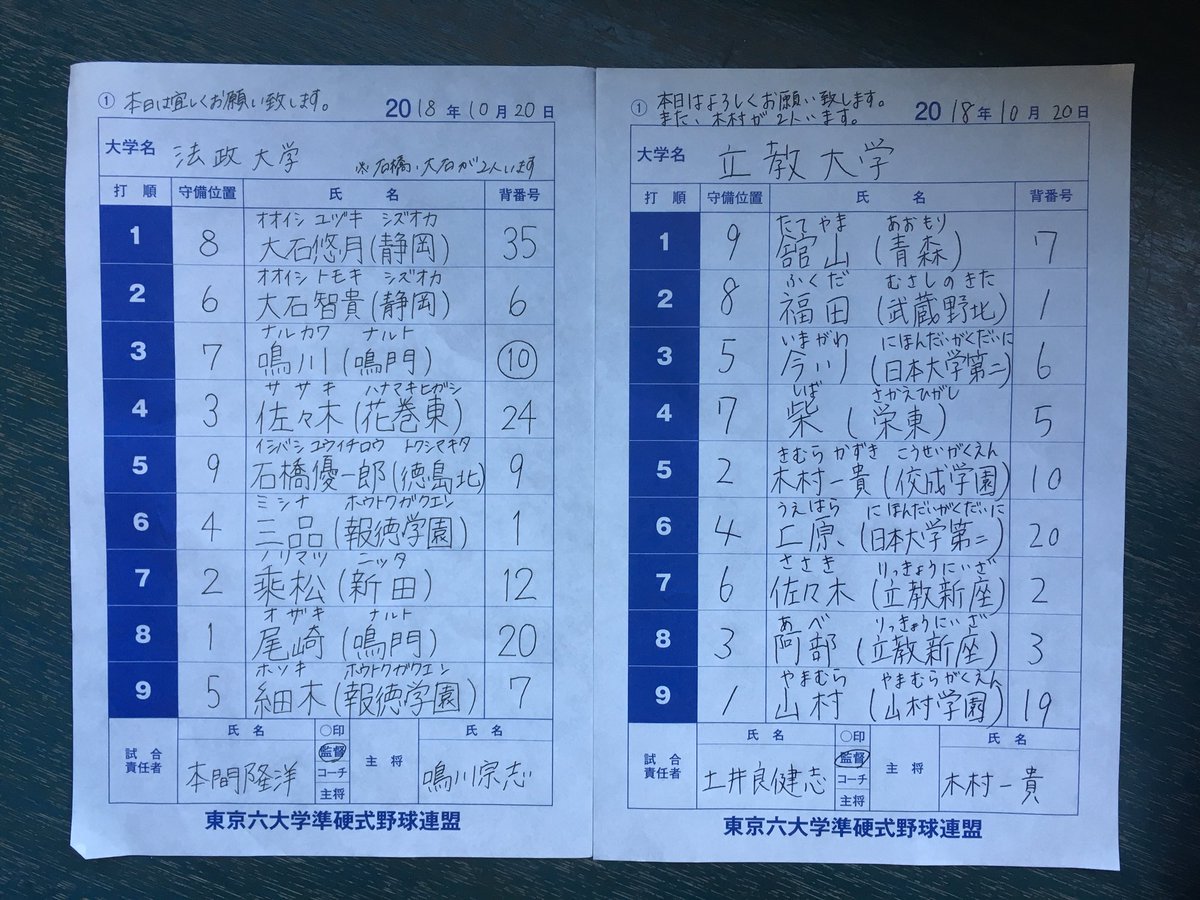 ① 本日は宜しくお願い致します。
2018年10月20日
大学名 法政大学 ※石橋、大石が2人います
打順 守備位置 氏名 背番号
オオイシ ユヅキ シズオカ
1 8 大石悠月(静岡) 35
オオイシ トモキ シズオカ
2 6 大石智貴(静岡) 6
ナルカワ ナルト
3 7 鳴川(鳴門) 10
ササキ ハナマキヒガシ
4 3 佐々木(花巻東) 24
イシバシ ユウイチロウ トクシマキタ
5 9 石橋優一郎(徳島北) 9
ミシナ ホウトクガクエン
6 4 三品(報徳学園) 1
ノリマツ ニッタ
7 2 乗松(新田) 12
オザキ ナルト
8 1 尾崎(鳴門) 20
ホソキ ホウトクガクエン
9 5 細木(報徳学園) 7
試合責任者 氏名 本間隆洋 ○印 監督 コーチ 主将 主将 氏名 鳴川宗志
東京六大学準硬式野球連盟
① 本日はよろしくお願い致します。
また、木村が2人います。
2018年10月20日
大学名 立教大学
打順 守備位置 氏名 背番号
たてやま あおもり
1 9 舘山(青森) 7
ふくだ むさしのきた
2 8 福田(武蔵野北) 1
いまがわ にほんだいがくだいに
3 5 今川(日本大学第二) 6
しば さかえひがし
4 7 柴(栄東) 5
きむら かずき こうせいがくえん
5 2 木村一貴(佼成学園) 10
うえはら にほんだいがくだいに
6 4 上原(日本大学第二) 20
ささき りっきょうにいざ
7 6 佐々木(立教新座) 2
あべ りっきょうにいざ
8 3 阿部(立教新座) 3
やまむら やまむらがくえん
9 1 山村(山村学園) 19
試合責任者 氏名 土井良健志 ○印 監督 コーチ 主将 主将 氏名 木村一貴
東京六大学準硬式野球連盟